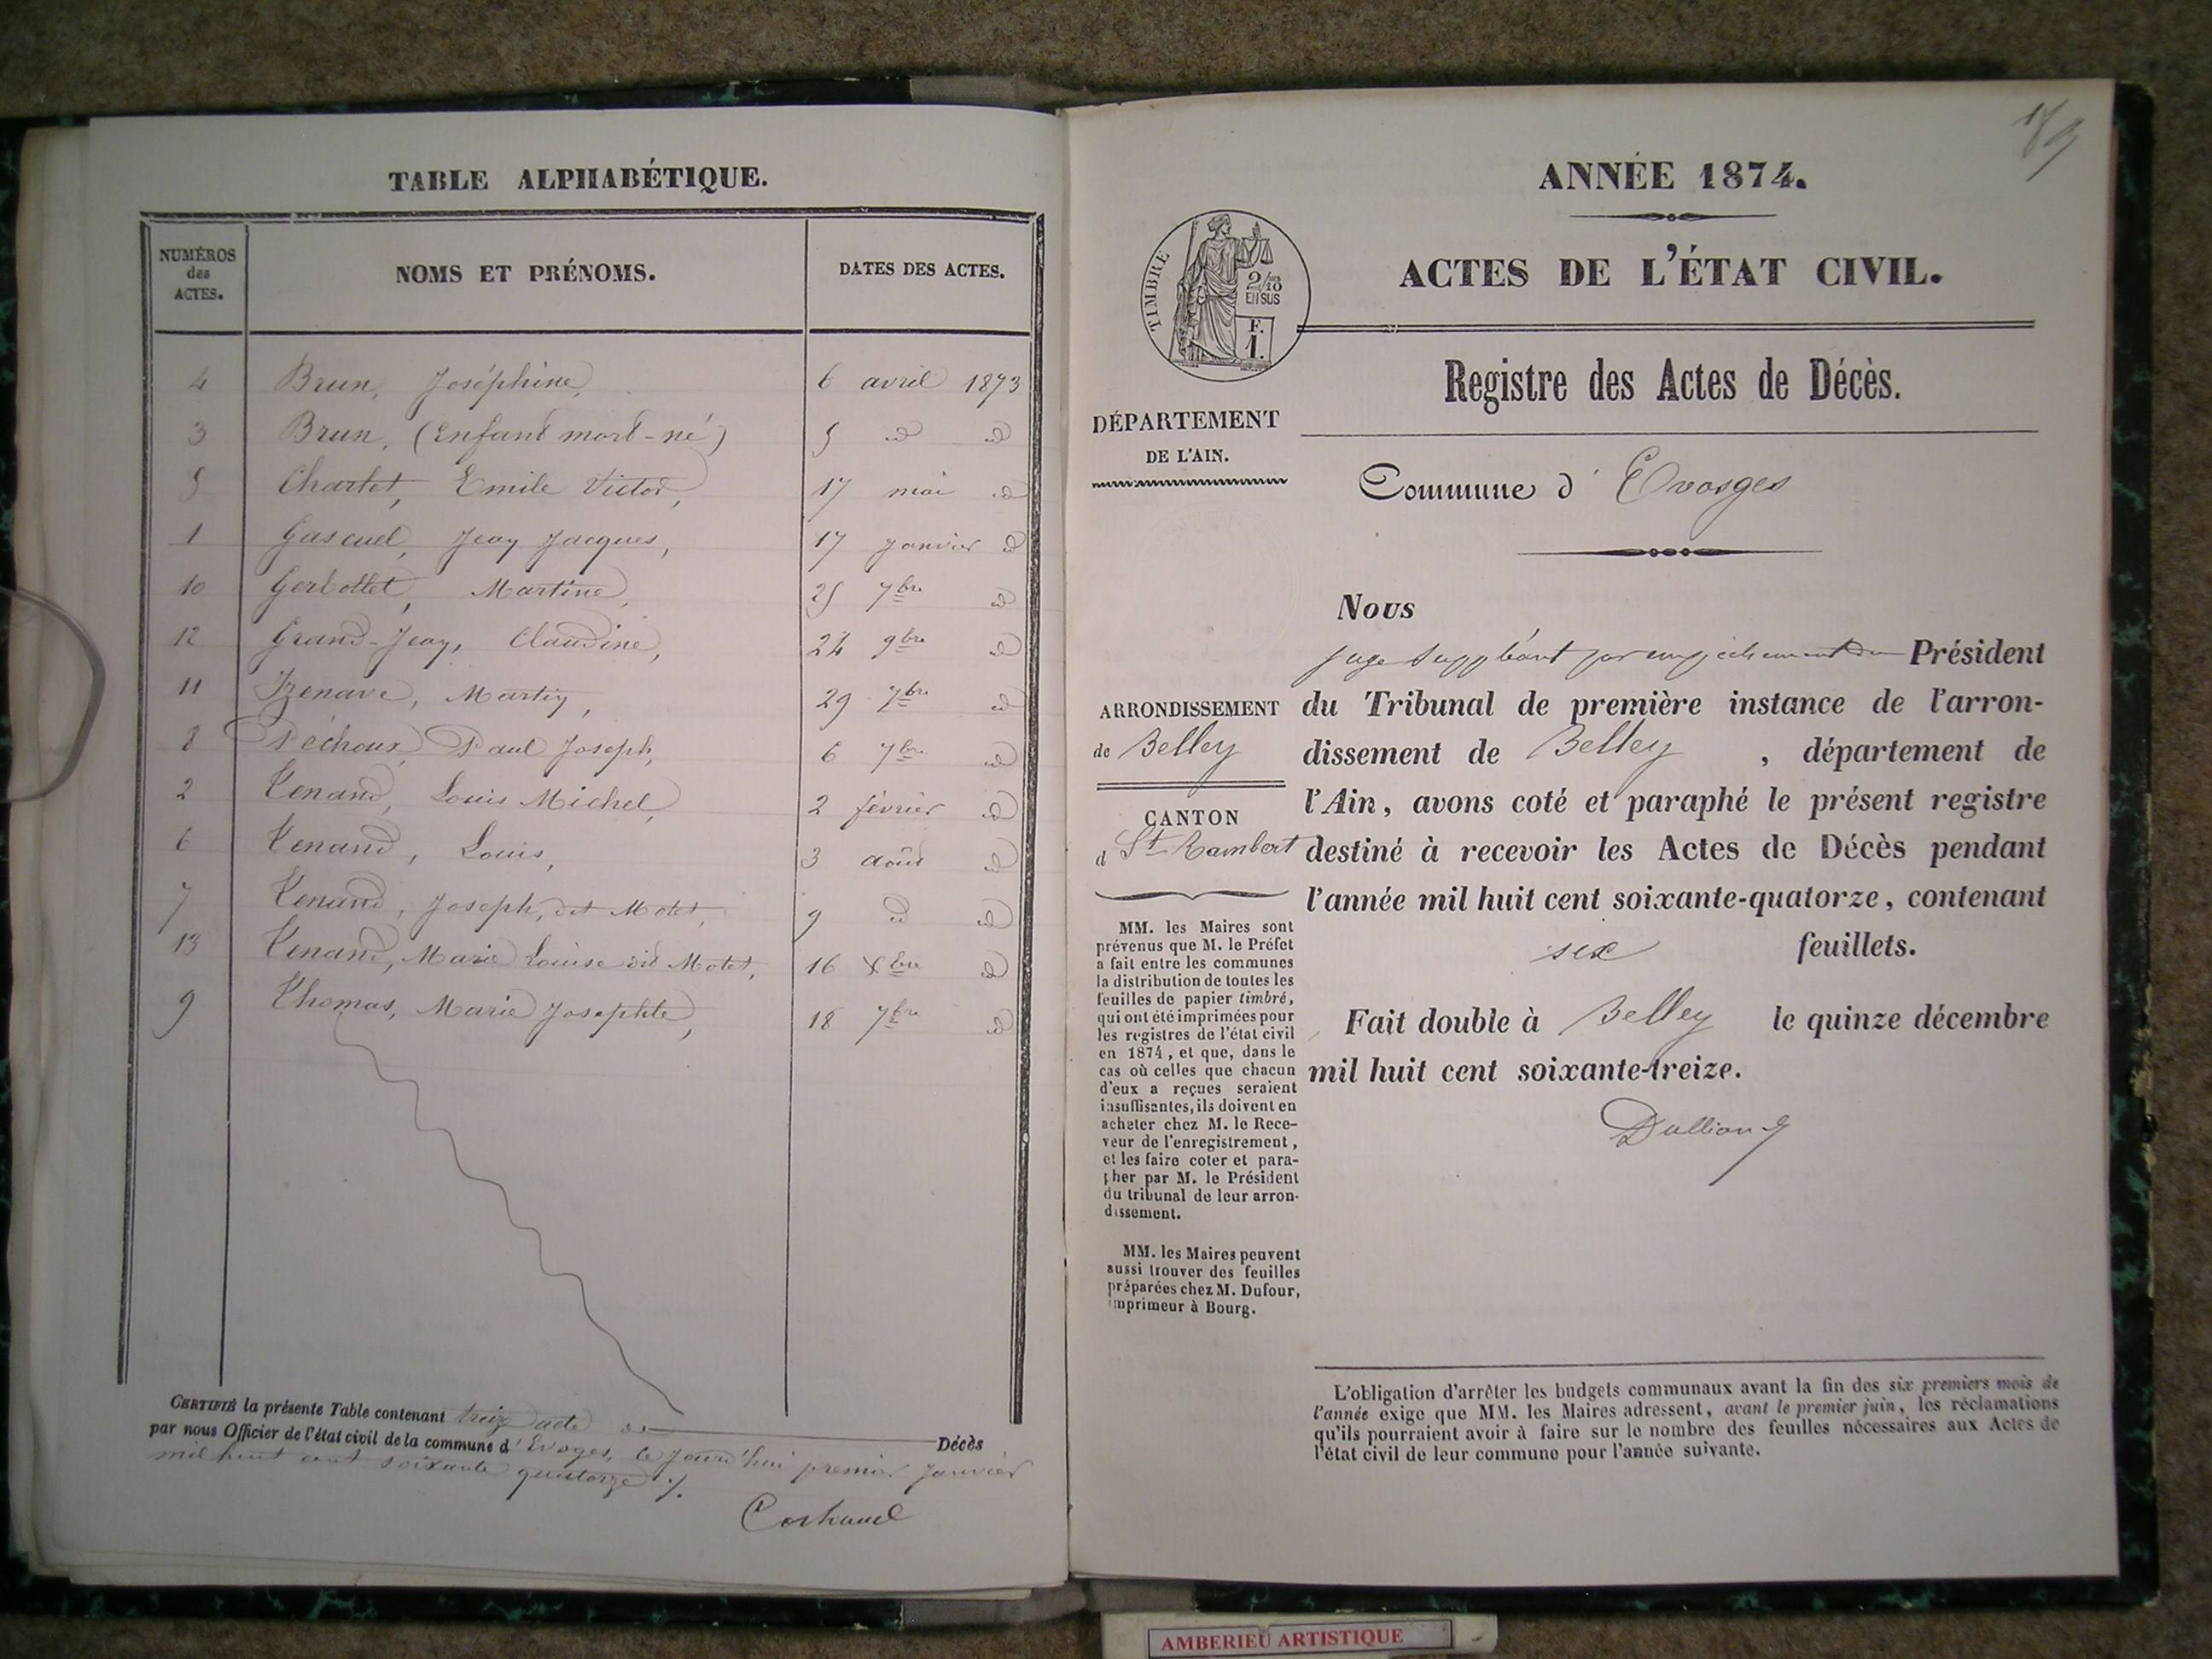 TABLE ALPHABÉTIQUE.
NUMÉROS
des
ACTES.
NOMS ET PRÉNOMS.
DATES DES ACTES.
4 Brun, Joséphine, 6 avril 1873
3 Brun, (Enfant mort-né) 5 id id
5 Chartet, Emile Victor, 17 mai id
1 Gascuel, Jean Jacques, 17 janvier id
10 Gerbottet, Martine, 25 7bre id
12 Grand-Jean, Claudine, 24 9bre id
11 Izenave, Martin, 29 7bre id
8 Péchoux, Paul Joseph, 6 7bre id
2 Tenand, Louis Michel, 2 février id
6 Tenand, Louis, 3 août id
7 Tenand, Joseph, dit Motet, 9 id id
13 Tenand, Marie Louise dit Motet, 16 Xbre id
9 Thomas, Marie Josephte, 18 7bre id
CERTIFIÉ la présente Table contenant treize acte de Décès
par nous Officier de l'état civil de la commune d'Evoges, ce jourd'hui premier Janvier
mil huit cent soixante quatorze ./.
ANNÉE 1874.
TIMBRE
2/10
EN SUS
F.
1.
ACTES DE L'ÉTAT CIVIL.
Registre des Actes de Décès.
DÉPARTEMENT
DE L'AIN.
Commune d'Evosges
Nous
juge suppléant par empêchement du Président
du Tribunal de première instance de l'arron-
dissement de Belley , département de
l'Ain, avons coté et paraphé le présent registre
destiné à recevoir les Actes de Décès pendant
l'année mil huit cent soixante-quatorze, contenant
six feuillets.
Fait double à Belley le quinze décembre
mil huit cent soixante-treize.
ARRONDISSEMENT
de Belley
CANTON
d St-Rambert
MM. les Maires sont
prévenus que M. le Préfet
a fait entre les communes
la distribution de toutes les
feuilles de papier timbré,
qui ont été imprimées pour
les registres de l'état civil
en 1874, et que, dans le
cas où celles que chacun
d'eux a reçues seraient
insuffisantes, ils doivent en
acheter chez M. le Rece-
veur de l'enregistrement,
et les faire coter et para-
pher par M. le Président
du tribunal de leur arron-
dissement.
MM. les Maires peuvent
aussi trouver des feuilles
préparées chez M. Dufour,
imprimeur à Bourg.
L'obligation d'arrêter les budgets communaux avant la fin des six premiers mois de
l'année exige que MM. les Maires adressent, avant le premier juin, les réclamations
qu'ils pourraient avoir à faire sur le nombre des feuilles nécessaires aux Actes de
l'état civil de leur commune pour l'année suivante.
AMBERIEU ARTISTIQUE